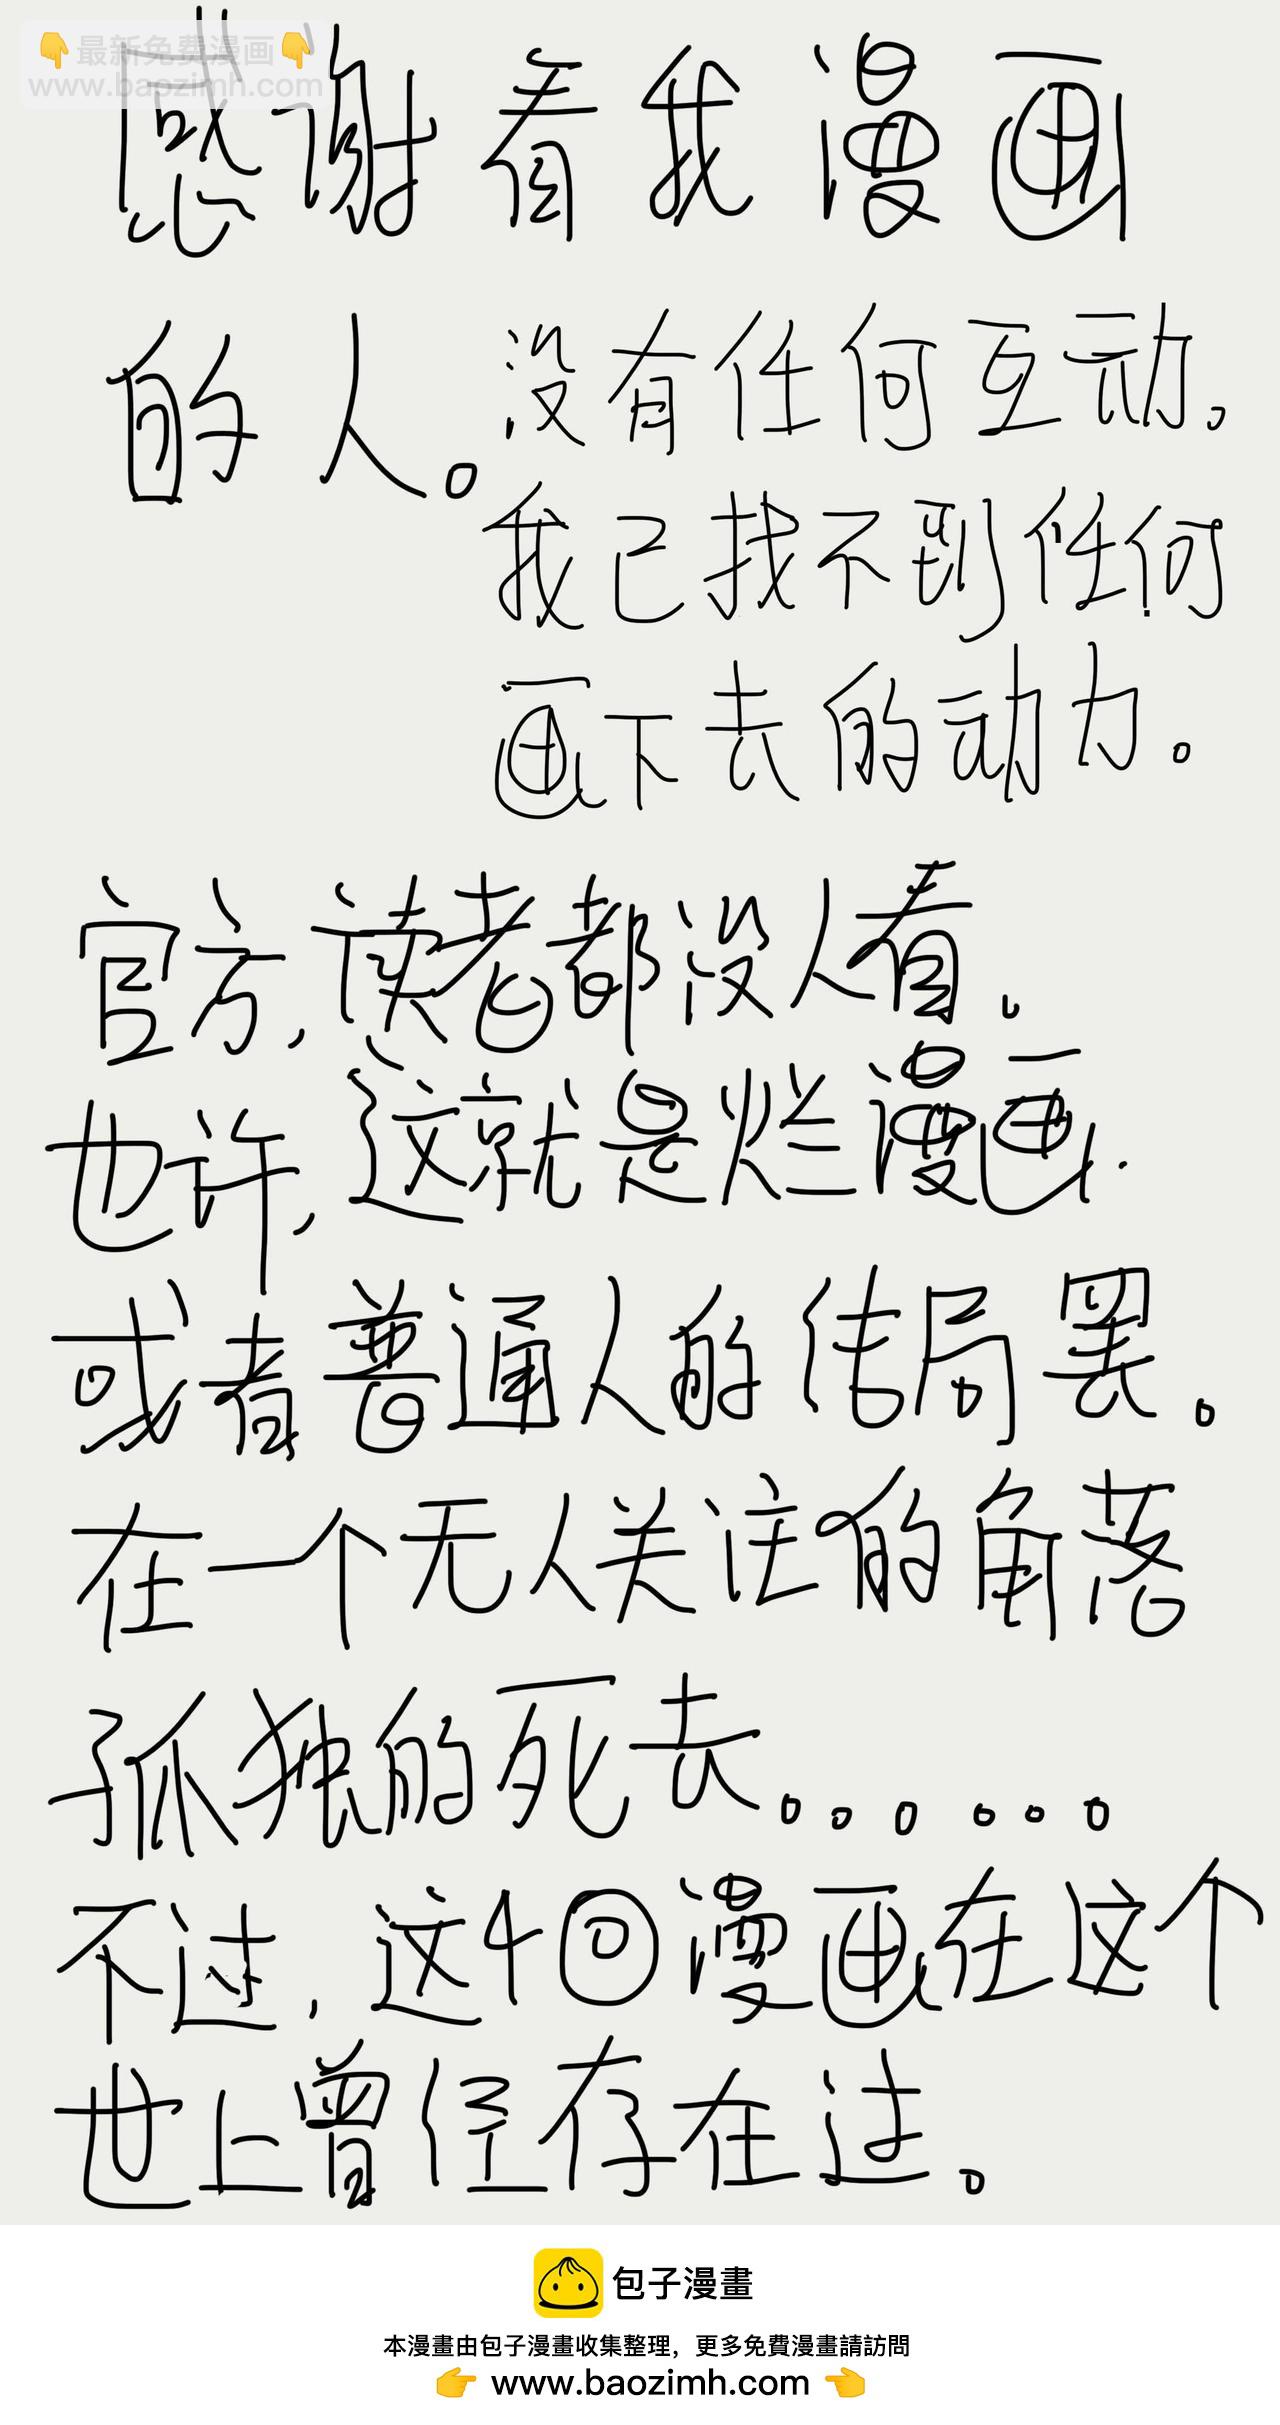 👇最新免费漫画👇
www.baozimh.com
感谢看我漫画
的人。
没有任何互动。
我已找不到任何
画下去的动力。
官方,读者都没人看。
也许,这就是烂漫画.
或者普通人的结局罢。
在一个无人关注的角落
孤独的死去。。。。。。。
不过,这4回漫画在这个
世上曾经存在过。
包子漫畫
本漫畫由包子漫畫收集整理，更多免費漫畫請訪問
👉 www.baozimh.com 👈